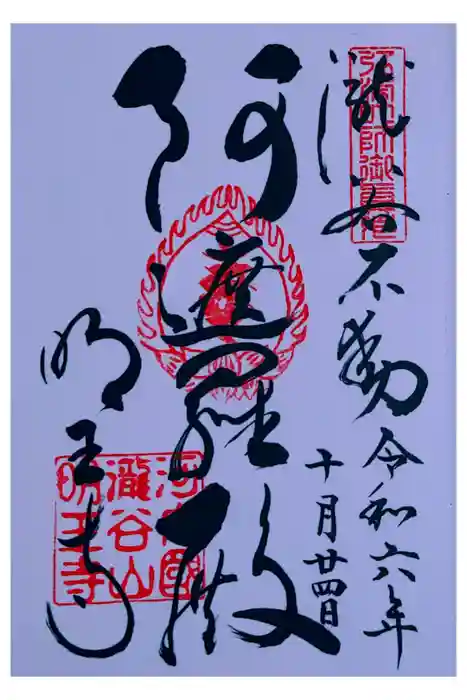 弘法大師御
瀧谷不動
令和六年
十月廿四日
阿遮羅殿
明王寺
河内國
瀧谷山
明王寺